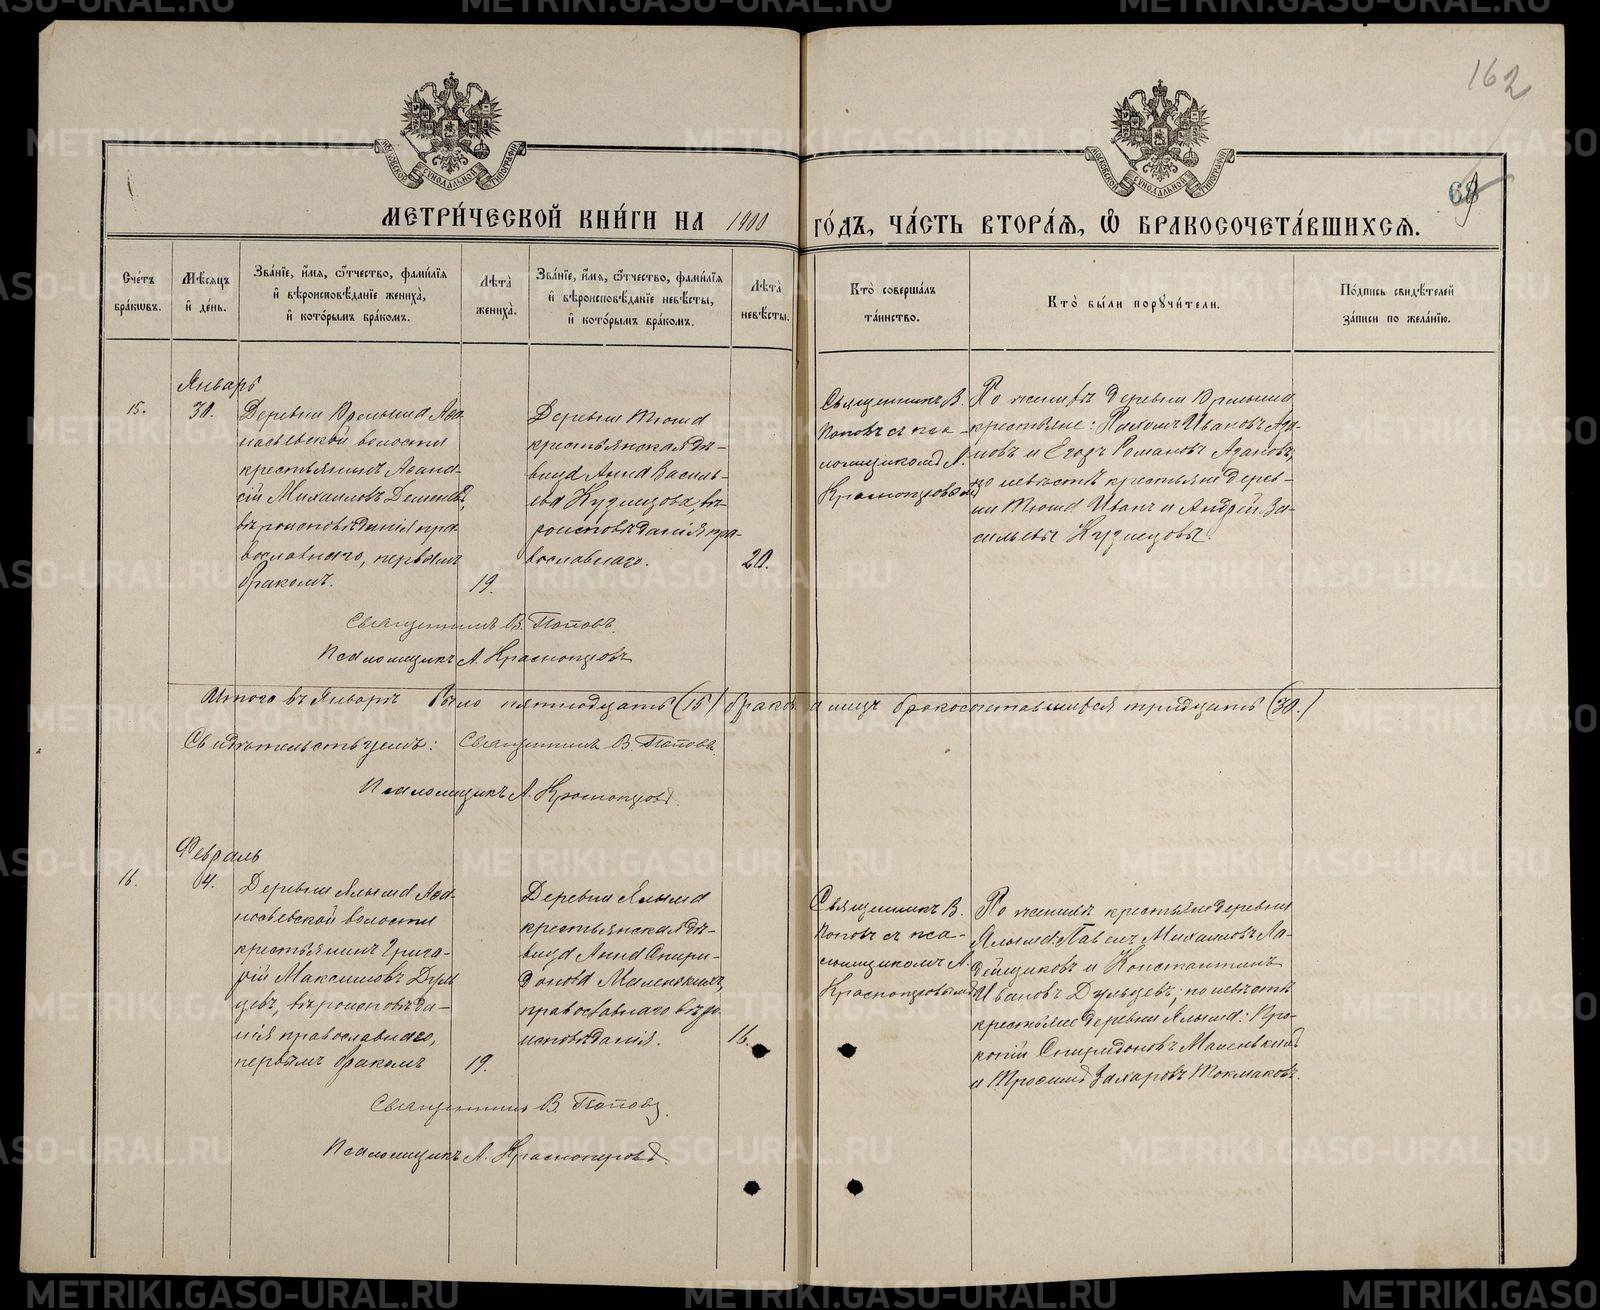 162
68
МОСКОВСКОЙ СѴНОДАЛЬНОЙ ТИПОГРАФІИ
МОСКОВСКОЙ СѴНОДАЛЬНОЙ ТИПОГРАФІИ
МЕТРИ́ЧЕСКОЙ КНИ́ГИ НА 1900 ГО́ДЪ, ЧА́СТЬ ВТОРА́Я, Ѽ БРАКОСОЧЕТА́ВШИХСЯ.
Сче́тъ
бра́ковъ.
Мѣ́сяцъ
и҆ де́нь.
Зва́нїе, и҆́мя, ѻ҆́тчество, фами́лїя
и҆ вѣроисповѣ́данїе жениха̀,
и҆ кото́рымъ бра́комъ.
Лѣ́та
жениха̀.
Зва́нїе, и҆́мя, ѻ҆́тчество, фами́лїя
и҆ вѣроисповѣ́данїе невѣ́сты,
и҆ кото́рымъ бра́комъ.
Лѣ́та
невѣ́сты.
Кто̀ соверша́лъ
та́инство.
Кто̀ бы́ли порꙋчи́тели.
По́дпись свидѣ́телей
за́писи по жела́нїю.
Январь
15.
30.
Деревни
насьевской волости
крестьянинъ Аѳана-
сій Михаиловъ
вѣроисповѣданія пра
вославнаго, первымъ
бракомъ.
19.
Деревни Тюша
крестьянская дѣ-
вица Анна Василь-
ева Кузнецова, вѣ-
роисповѣданія пра-
вославнаго.
20.
Священникъ В.
Поповъ съ пса-
ломщикомъ А.
Красноперовымъ
По женихѣ деревни
крестьяне: Пахомъ Ивановъ
и Егоръ Романовъ
по невѣстѣ крестьяне дерев-
ни Тюша Иванъ и Андрей Ва-
сильевы Кузнецовы.
Священникъ В. Поповъ.
Псаломщикъ А. Красноперовъ
Итого въ Январѣ было пятнадцать (15) браковъ и лицъ бракосочетавшихся тридцать (30.)
Свидѣтельствуемъ: Священникъ В. Поповъ.
Псаломщикъ А. Красноперовъ.
Февраль
16.
4.
Деревни Ялыма Аѳа-
насьевской волости
крестьянинъ Григо-
рій Максимовъ Дуль
цевъ, вѣроисповѣда-
нія православнаго,
первымъ бракомъ
19.
Деревни Ялыма
крестьянская дѣ-
вица Анна Спири-
донова Маленькихъ,
православнаго вѣро
исповѣданія.
16.
Священникъ В.
Поповъ съ пса-
ломщикомъ А.
Красноперовымъ
По женихѣ крестьяне деревни
Ялыма: Павелъ Михаиловъ Ла-
дейщиковъ и Константинъ
Ивановъ Дульцевъ; по невѣстѣ
крестьяне деревни Ялыма: Про-
копій Спиридоновъ Маленькихъ
и Трофимъ Захаровъ Токмаковъ.
Священникъ В. Поповъ.
Псаломщикъ А. Красноперовъ.
METRIKI.GASO-URAL.RU